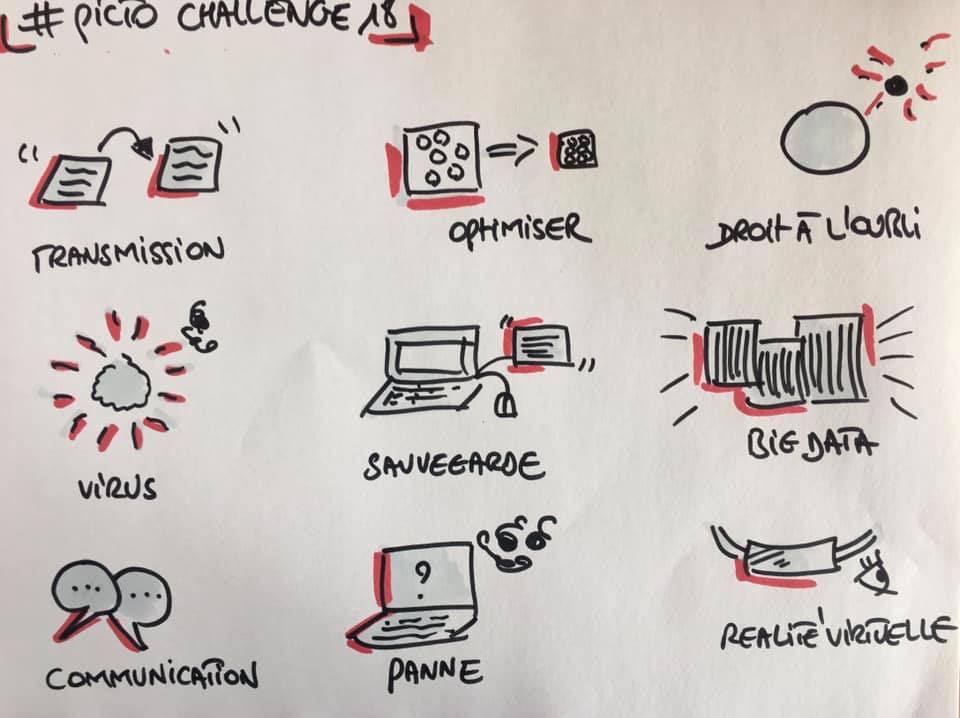 # PICTO CHALLENGE 18
TRANSMISSION
OPTIMISER
DROIT À L'OUBLI
VIRUS
SAUVEGARDE
BIG DATA
?
COMMUNICATION
PANNE
REALITÉ VIRTUELLE